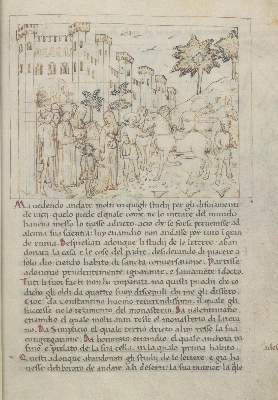 Ma vedendo andare molti in quegli studij per gli disiciamenti
de vitij quello piede el quale come ne lo intrare del mondo
haveva messo lo trasse adrieto
alcuna sua scientia lui etiamdio non andasse poi tuto i gran
de ruina. Despregiati adonque li studij de le lettere aban
donata la casa e le cose del padre desiderando di piacere a
solo dio cercando habito di sancta conversatione. Partisse
adonque prudentemente ignorante e saviamente idocto.
Tuti li soi facti non ho imparati ma questi pochi che io
dicho gli odi da quattro suoi discepuli che me gli dissero.
Cioe da constantino huomo reverendissimo il quale gli
successe ne lo regimento del monasterio. Da valentiniano
el quale molti anni resse el monasterio di Latera
no. Da Simplicio el quale tertio drieto a lui resse la sua
congregatione. Da honorato etiamdio el quale anchora re
prima habito.
Questi adonque abandonati gli studij de le lettere e gia ha
vesse deliberato de andare al deserto la sua nutrice la qle